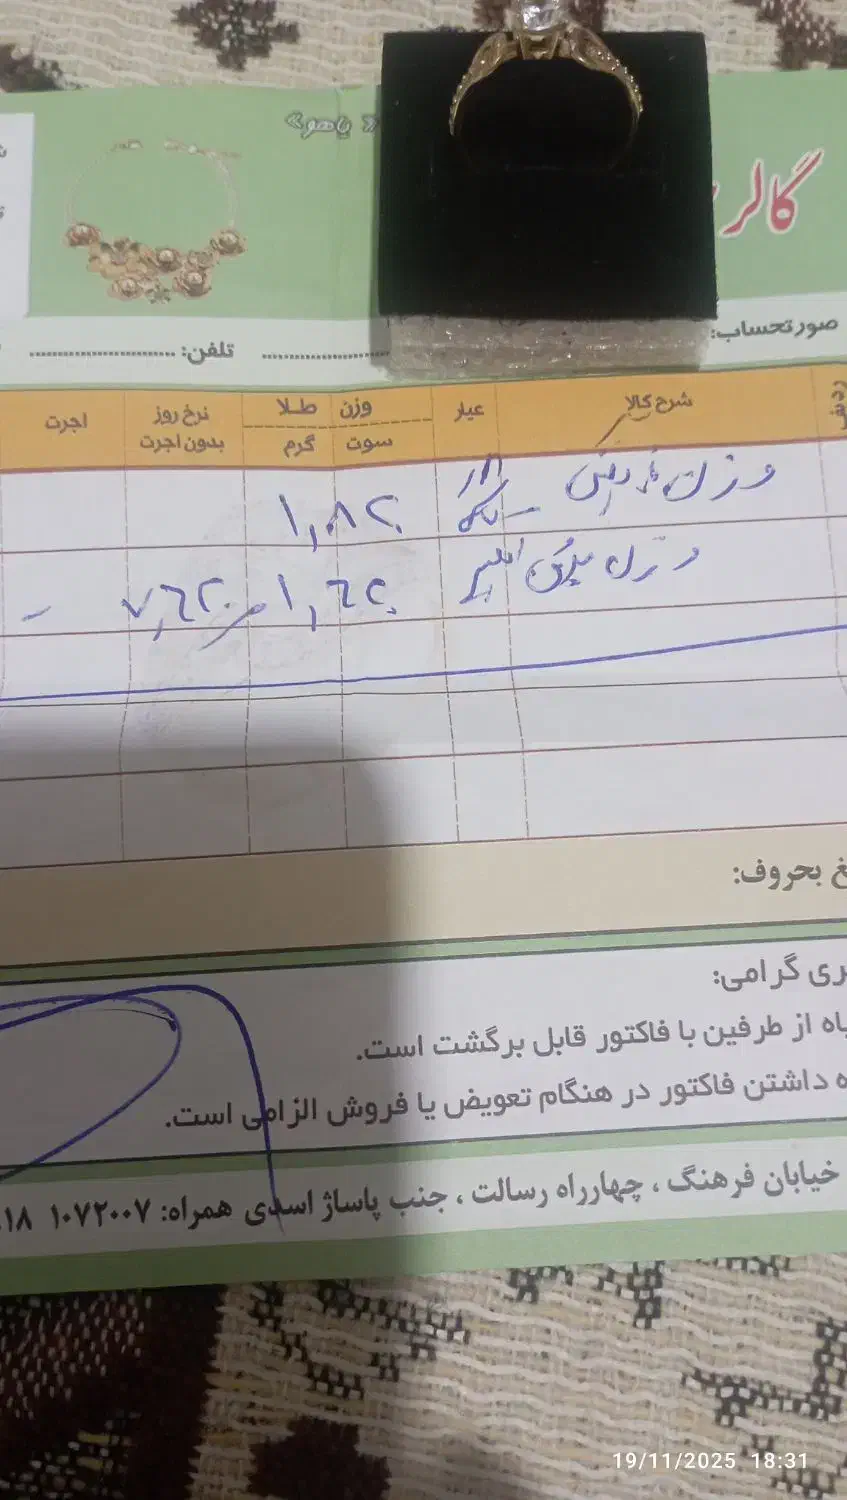 « یاهو »
گالر
صورتحساب:
تلفن:
ردیف شرح کالا عیار وزن طلا نرخ روز اجرت
سوت گرم بدون اجرت
وزن با ۱,۸۲
وزن بدون ۱,۶۲ ۷,۶۲
غ بحروف:
ری گرامی:
اه از طرفین با فاکتور قابل برگشت است.
ه داشتن فاکتور در هنگام تعویض یا فروش الزامی است.
خیابان فرهنگ ، چهارراه رسالت ، جنب پاساژ اسدی همراه: ۱۰۷۲۰۰۷ ۱۸
19/11/2025 18:31